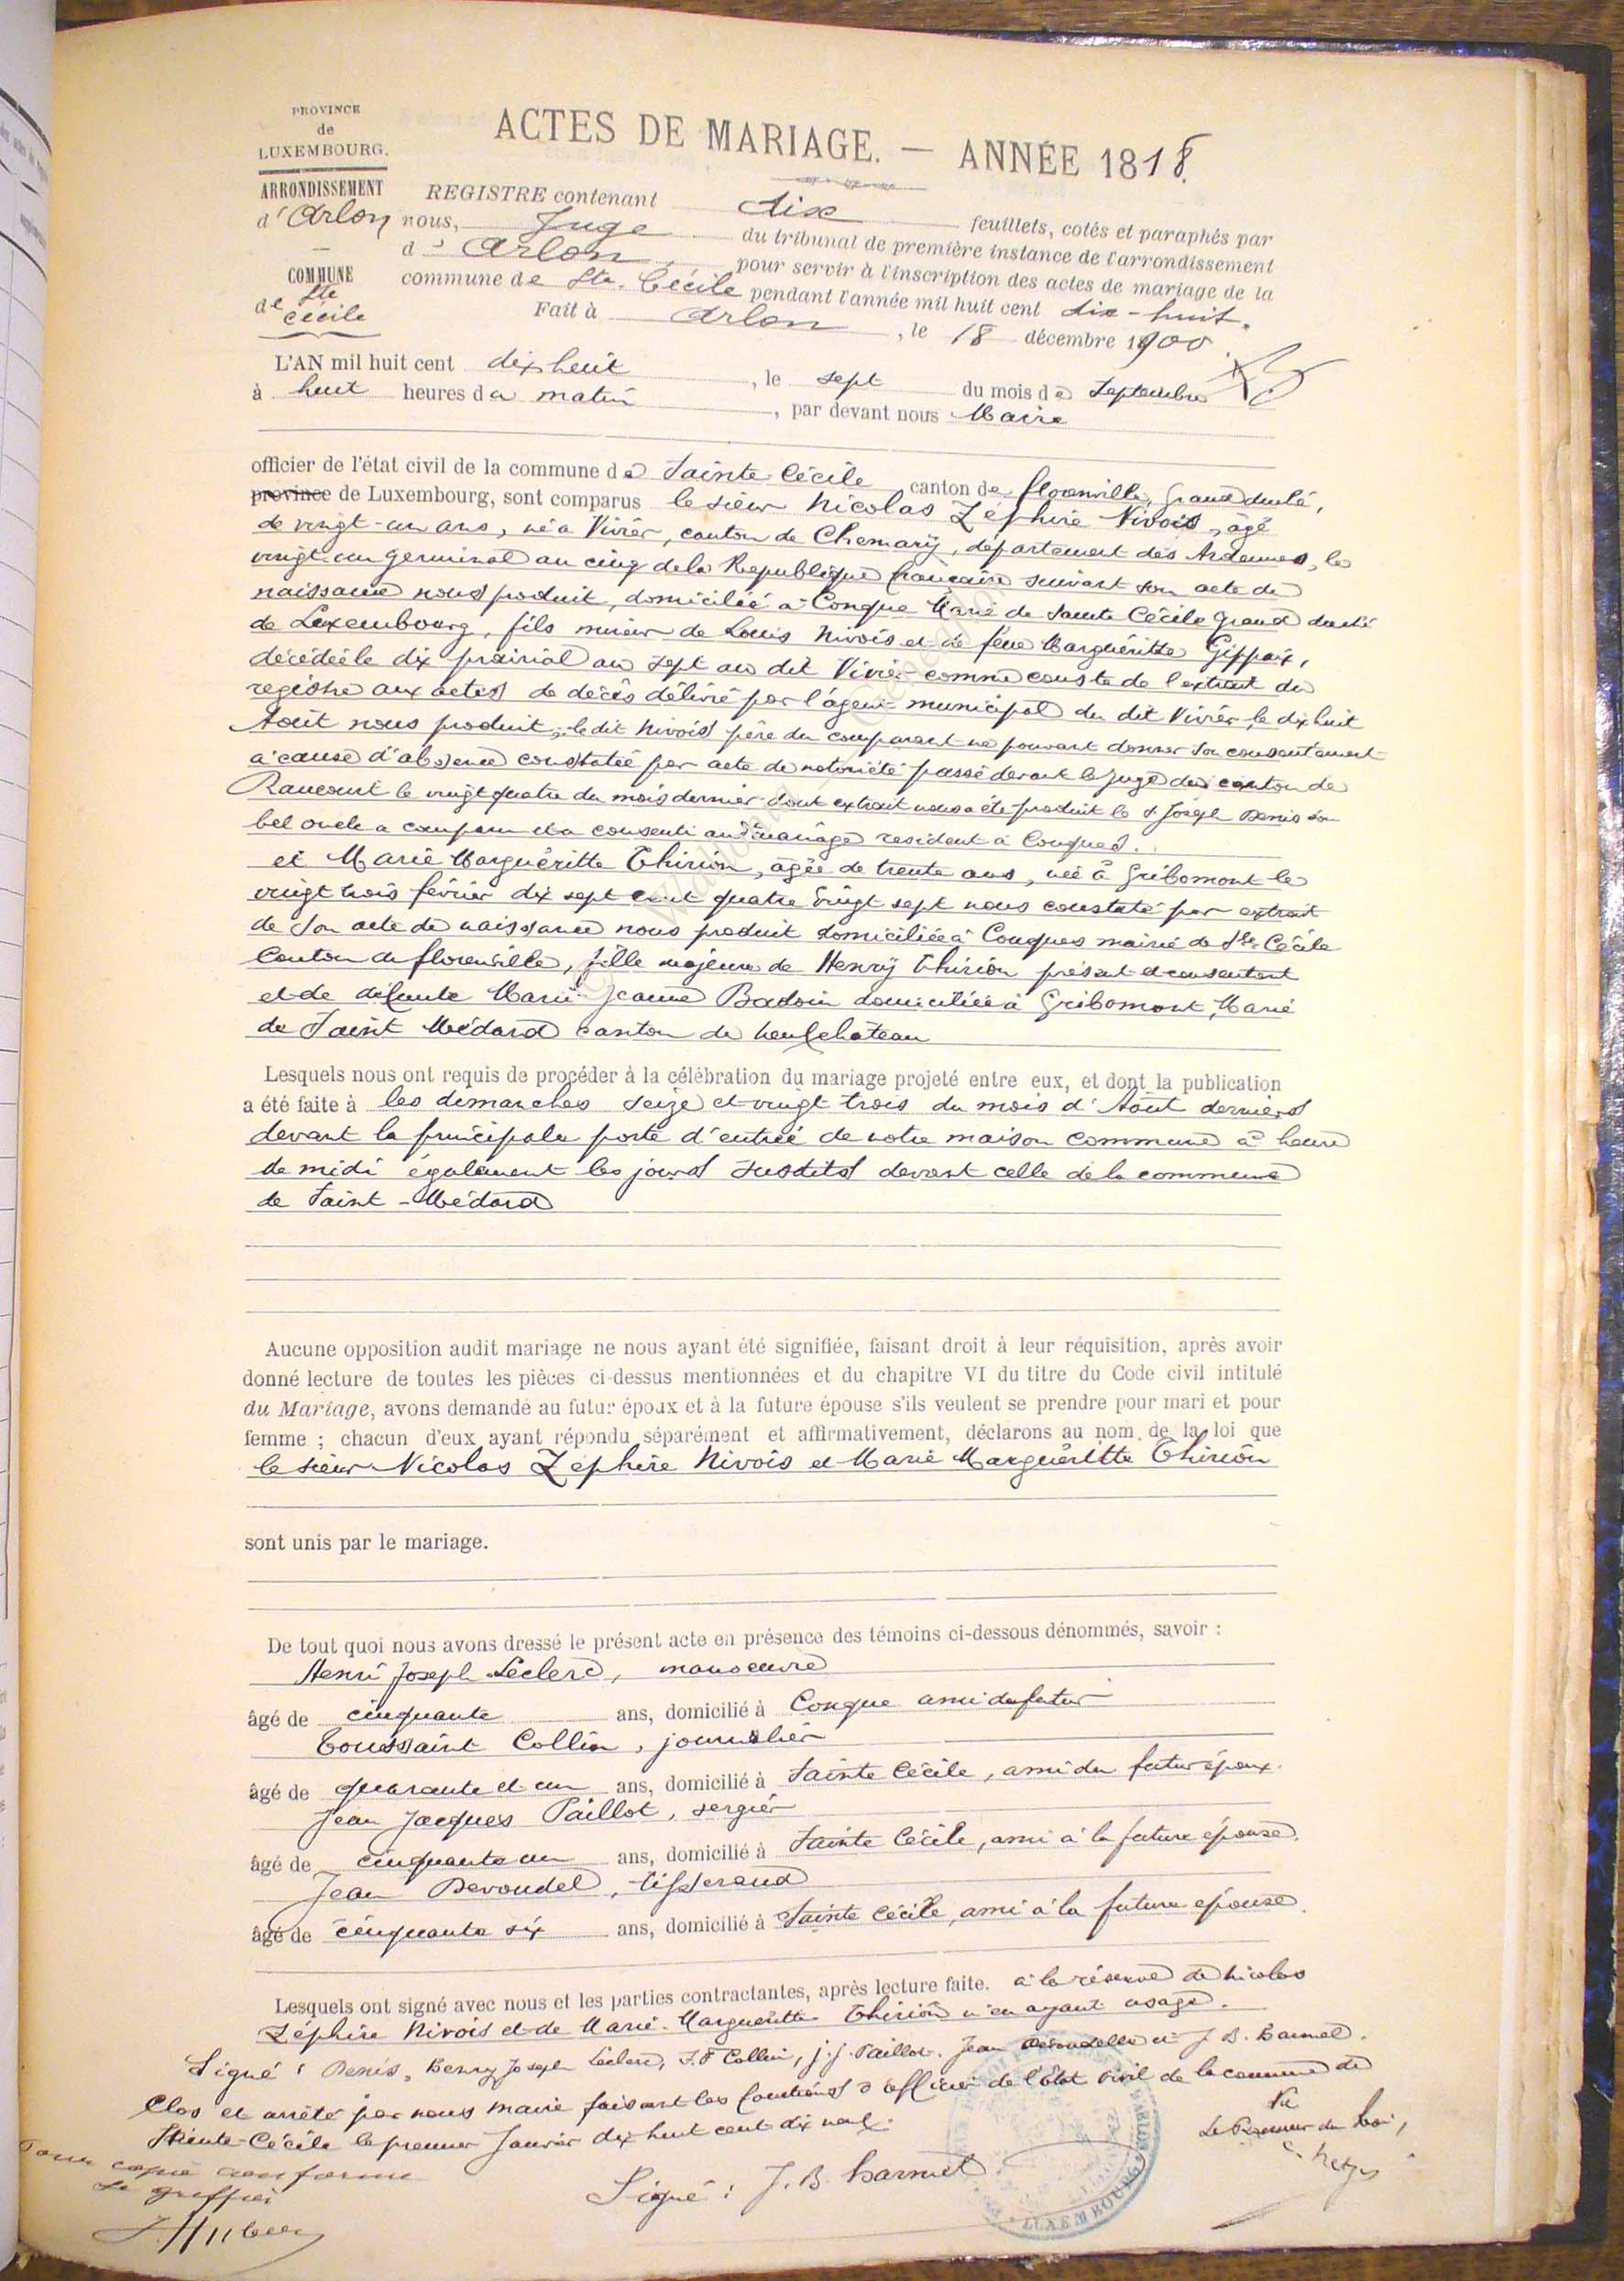 PROVINCE
de
LUXEMBOURG.
ARRONDISSEMENT
d'Arlon
COMMUNE
de Ste
Cécile
ACTES DE MARIAGE. — ANNÉE 1818.
REGISTRE contenant dix feuillets, cotés et paraphés par
nous, Juge du tribunal de première instance de l'arrondissement
d'Arlon, pour servir à l'inscription des actes de mariage de la
commune de Ste. Cécile pendant l'année mil huit cent dix-huit.
Fait à Arlon, le 18 décembre 1900
L'AN mil huit cent dix huit, le sept du mois de Septembre
à huit heures du matin, par devant nous Maire
officier de l'état civil de la commune de Sainte-Cécile canton de florenville, Grand duché,
province de Luxembourg, sont comparus le sieur Nicolas Zéphire Nivois, âgé
de vingt-un ans, né a Vivier, canton de Chemary, département des Ardennes, le
vingt-un germinal an cinq de la Republique française suivant son acte de
naissance nous produit, domicilié a Conque Mairie de Sainte Cécile grand duché
de Luxembourg, fils mineur de Louis Nivois et de feue Marguéritte Gippaix,
décédée le dix prairial an sept au dit Vivier comme conste de l'extrait du
registre aux actes de décès délivré par l'agent municipal du dit Vivier le dix huit
Août nous produit, le dit Nivois père du comparant ne pouvant donner son consentement
a cause d'absence constatée par acte de notoriété passé devant le juge du canton de
Raucourt le vingt quatre du mois dernier dont extrait nous a été produit le s Joseph Denis son
bel oncle a comparu et a consenti au mariage resident à Conques.
et Marie Marguéritte Thirion, agée de trente ans, née à Gribomont le
vingt trois février dix sept cent quatre vingt sept nous constaté par extrait
de son acte de naissance nous produit domiciliée à Conques mairie de Ste Cécile
Canton de florenville, fille majeure de Henry Thirion présent et consentant
et de défunte Marie Jeanne Badoin domiciliée à Gribomont, Marie
de Saint Médard canton de neufchateau
Lesquels nous ont requis de procéder à la célébration du mariage projeté entre eux, et dont la publication
a été faite à les dimanches seize et vingt trois du mois d'Août derniers
devant la principale porte d'entrée de notre maison commune à heure
de midi également les jours susdits devant celle de la commune
de Saint-Médard
Aucune opposition audit mariage ne nous ayant été signifiée, faisant droit à leur réquisition, après avoir
donné lecture de toutes les pièces ci-dessus mentionnées et du chapitre VI du titre du Code civil intitulé
du Mariage, avons demandé au futur époux et à la future épouse s'ils veulent se prendre pour mari et pour
femme ; chacun d'eux ayant répondu séparément et affirmativement, déclarons au nom de la loi que
le sieur Nicolas Zéphire Nivois et Marie Marguéritte Thirion
sont unis par le mariage.
De tout quoi nous avons dressé le présent acte en présence des témoins ci-dessous dénommés, savoir :
Henri Joseph Leclerc, manoeuvre
âgé de cinquante ans, domicilié à Conque ami du futur
Toussaint Collin, journalier
âgé de quarante et un ans, domicilié à Sainte Cécile, ami du futur époux.
Jean Jacques Paillot, sergier
âgé de cinquante un ans, domicilié à Sainte Cécile, ami à la future épouse.
Jean Devoudel, tisserand
âgé de cinquante six ans, domicilié à Sainte Cécile, ami à la future épouse.
Lesquels ont signé avec nous et les parties contractantes, après lecture faite. à la réserve de Nicolas
Zéphire Nivois et de Marie-Marguéritte Thirion n'en ayant usage.
Signé : Denis, Henry Joseph Leclerc, Collin, j. j. Paillot. Jean et J. B. Harmel.
Clos et arrêté par nous maire faisant les fonctions d'officier de l'Etat Civil de la commune de
Sainte-Cécile le premier Janvier dix huit cent dix neuf.
Signé : J. B. harmel
Vu
Le Procureur du Roi,
Pour copie conforme
Le greffier
LUXEMBOURG